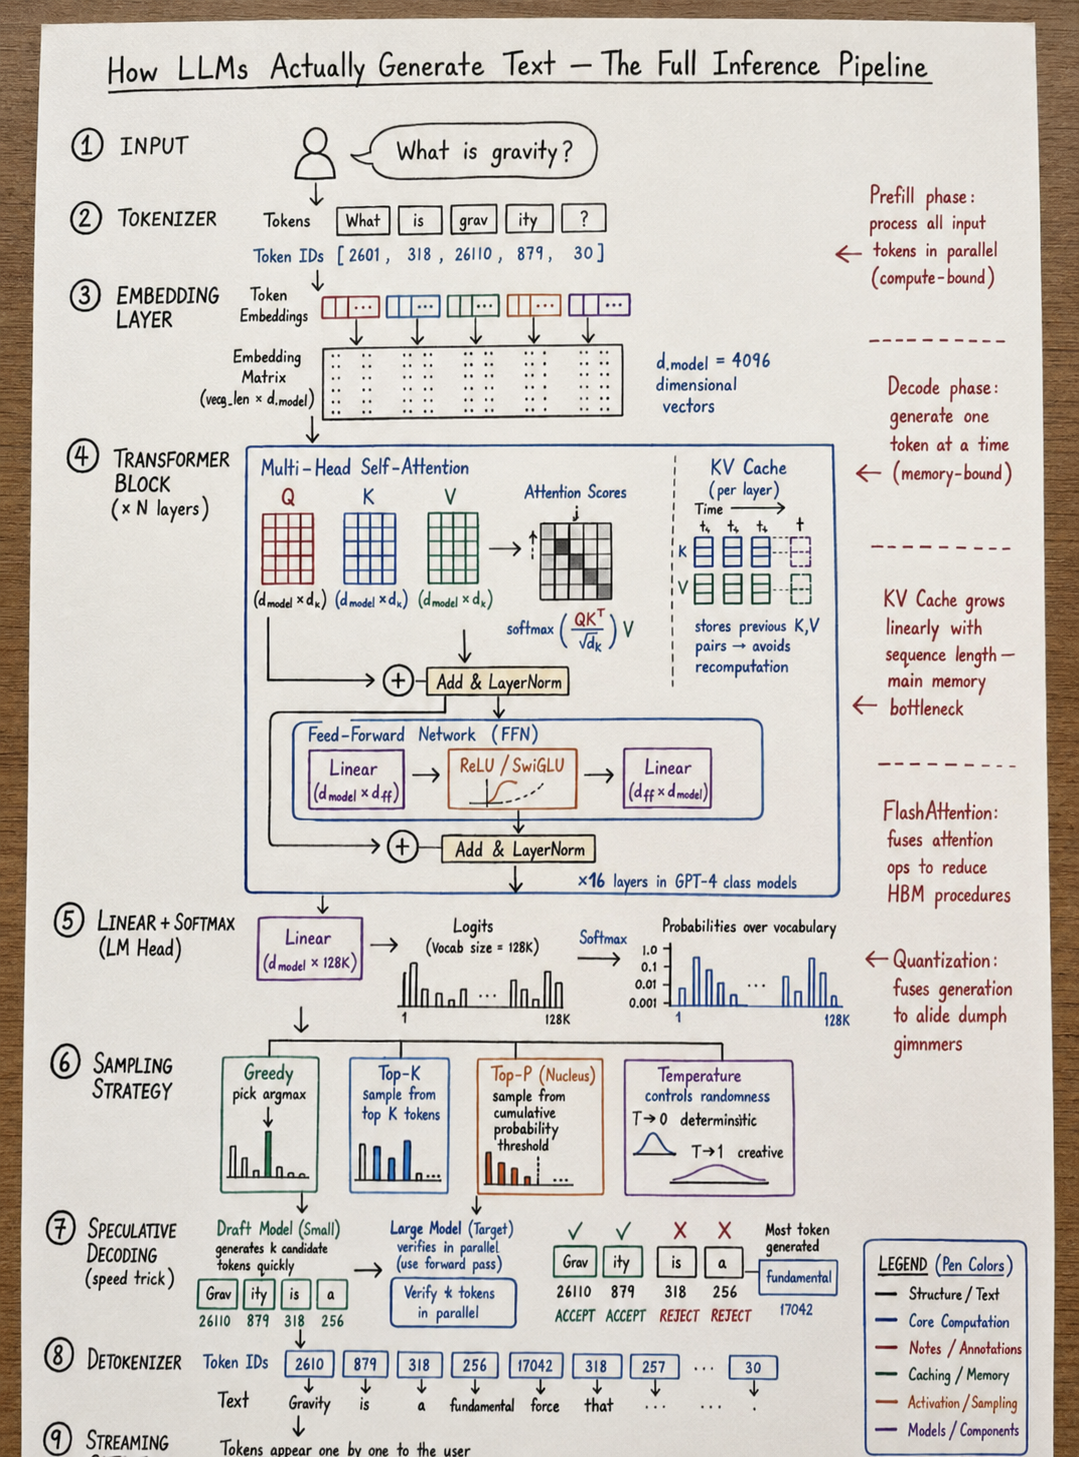 How LLMs Actually Generate Text — The Full Inference Pipeline
① INPUT
What is gravity?
② TOKENIZER
Tokens
What is grav ity ?
Token IDs [ 2601, 318, 26110, 879, 30 ]
③ EMBEDDING
LAYER
Token
Embeddings
Embedding
Matrix
(vecg_len × d.model)
d.model = 4096
dimensional
vectors
④ TRANSFORMER
BLOCK
(× N layers)
Multi-Head Self-Attention
Q K V
(d_model × d_k) (d_model × d_k) (d_model × d_k)
Attention Scores
softmax (QK^T / √d_k) V
KV Cache
(per layer)
Time
K
V
stores previous K,V
pairs → avoids
recomputation
+ Add & LayerNorm
Feed-Forward Network (FFN)
Linear
(d_model × d_ff)
ReLU / SwiGLU
Linear
(d_ff × d_model)
+ Add & LayerNorm
×16 layers in GPT-4 class models
⑤ LINEAR + SOFTMAX
(LM Head)
Linear
(d_model × 128K)
Logits
(Vocab size = 128K)
1 128K
Softmax
Probabilities over vocabulary
1.0
0.1
0.01
0.001
1 128K
⑥ SAMPLING
STRATEGY
Greedy
pick argmax
Top-K
sample from
top K tokens
Top-P (Nucleus)
sample from
cumulative
probability
threshold
Temperature
controls randomness
T→0 deterministic
T→1 creative
⑦ SPECULATIVE
DECODING
(speed trick)
Draft Model (Small)
generates k candidate
tokens quickly
Grav ity is a
26110 879 318 256
Large Model (Target)
verifies in parallel
(use forward pass)
Verify k tokens
in parallel
✓ ✓ X X
Grav ity is a
26110 879 318 256
ACCEPT ACCEPT REJECT REJECT
Most token
generated
fundamental
17042
⑧ DETOKENIZER
Token IDs 2610 879 318 256 17042 318 257 ... 30
Text Gravity is a fundamental force that ... ... .
⑨ STREAMING
Tokens appear one by one to the user
Prefill phase:
process all input
← tokens in parallel
(compute-bound)
Decode phase:
generate one
token at a time
← (memory-bound)
KV Cache grows
linearly with
sequence length—
main memory
← bottleneck
FlashAttention:
fuses attention
ops to reduce
HBM procedures
← Quantization:
fuses generation
to alide dumph
gimnmers
LEGEND (Pen Colors)
Structure / Text
Core Computation
Notes / Annotations
Caching / Memory
Activation / Sampling
Models / Components